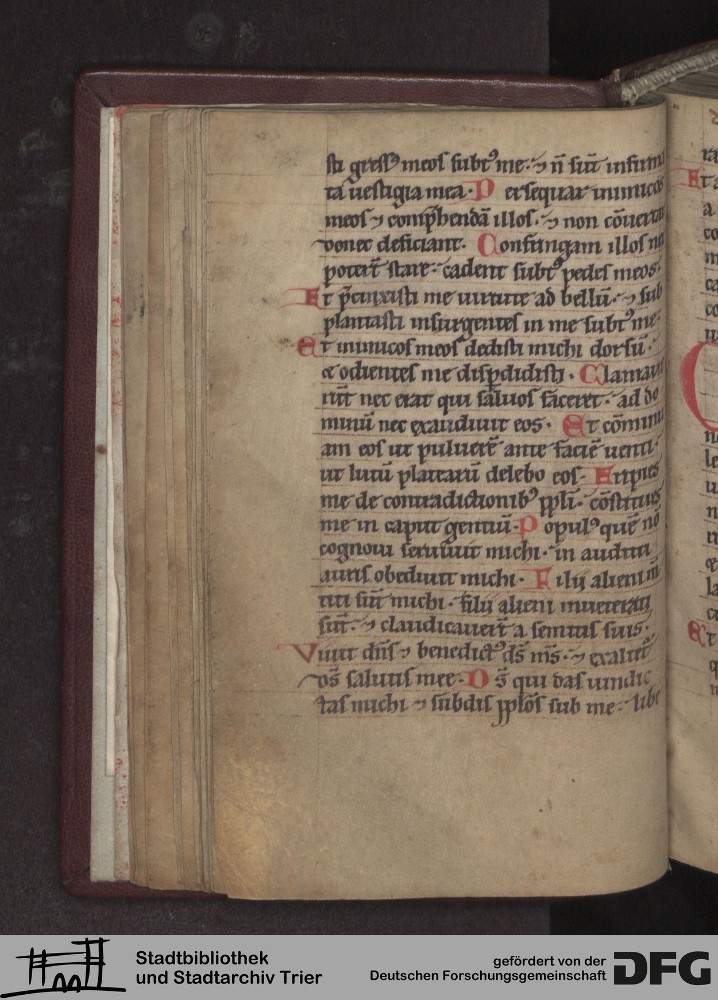 sti gressꝰ meos subtꝰ me· ⁊ nͦ sūt infirma
ta uestigia mea· Persequar inimicos
meos ⁊ comp̄hendā illos· ⁊ non cōuertar
donec deficiant· Confringam illos nec
poterūt stare· cadent subtꝰ pedes meos·
Et p̄cinxisti me uirtute ad bellū· ⁊ sub
plantasti insurgentes in me subtꝰ me·
Et inimicos meos dedisti michi dorsū·
⁊ odientes me disꝑdidisti· Clamaue
rūt nec erat qui saluos faceret· ad do
minū nec exaudiuit eos· Et cōminu
am eos ut puluerē ante faciē uenti·
ut lutū platearū delebo eos· Eripies
me de contradictionibꝰ ppli· cōstitues
me in caput gentiū· Populꝰ quē nō
cognoui seruiuit michi· in auditu
auris obediuit michi· Filij alieni m̄
titi sūt michi· filij alieni inueterati
sūt· ⁊ claudicauerūt a semitis suis·
Viuit dn̄s ⁊ benedictꝰ ds̄ ms̄· ⁊ exaltet̄
ds̄ salutis mee· Ds̄ qui das uindic
tas michi ⁊ subdis pplōs sub me· libe
Stadtbibliothek
und Stadtarchiv Trier
gefördert von der
Deutschen Forschungsgemeinschaft
DFG